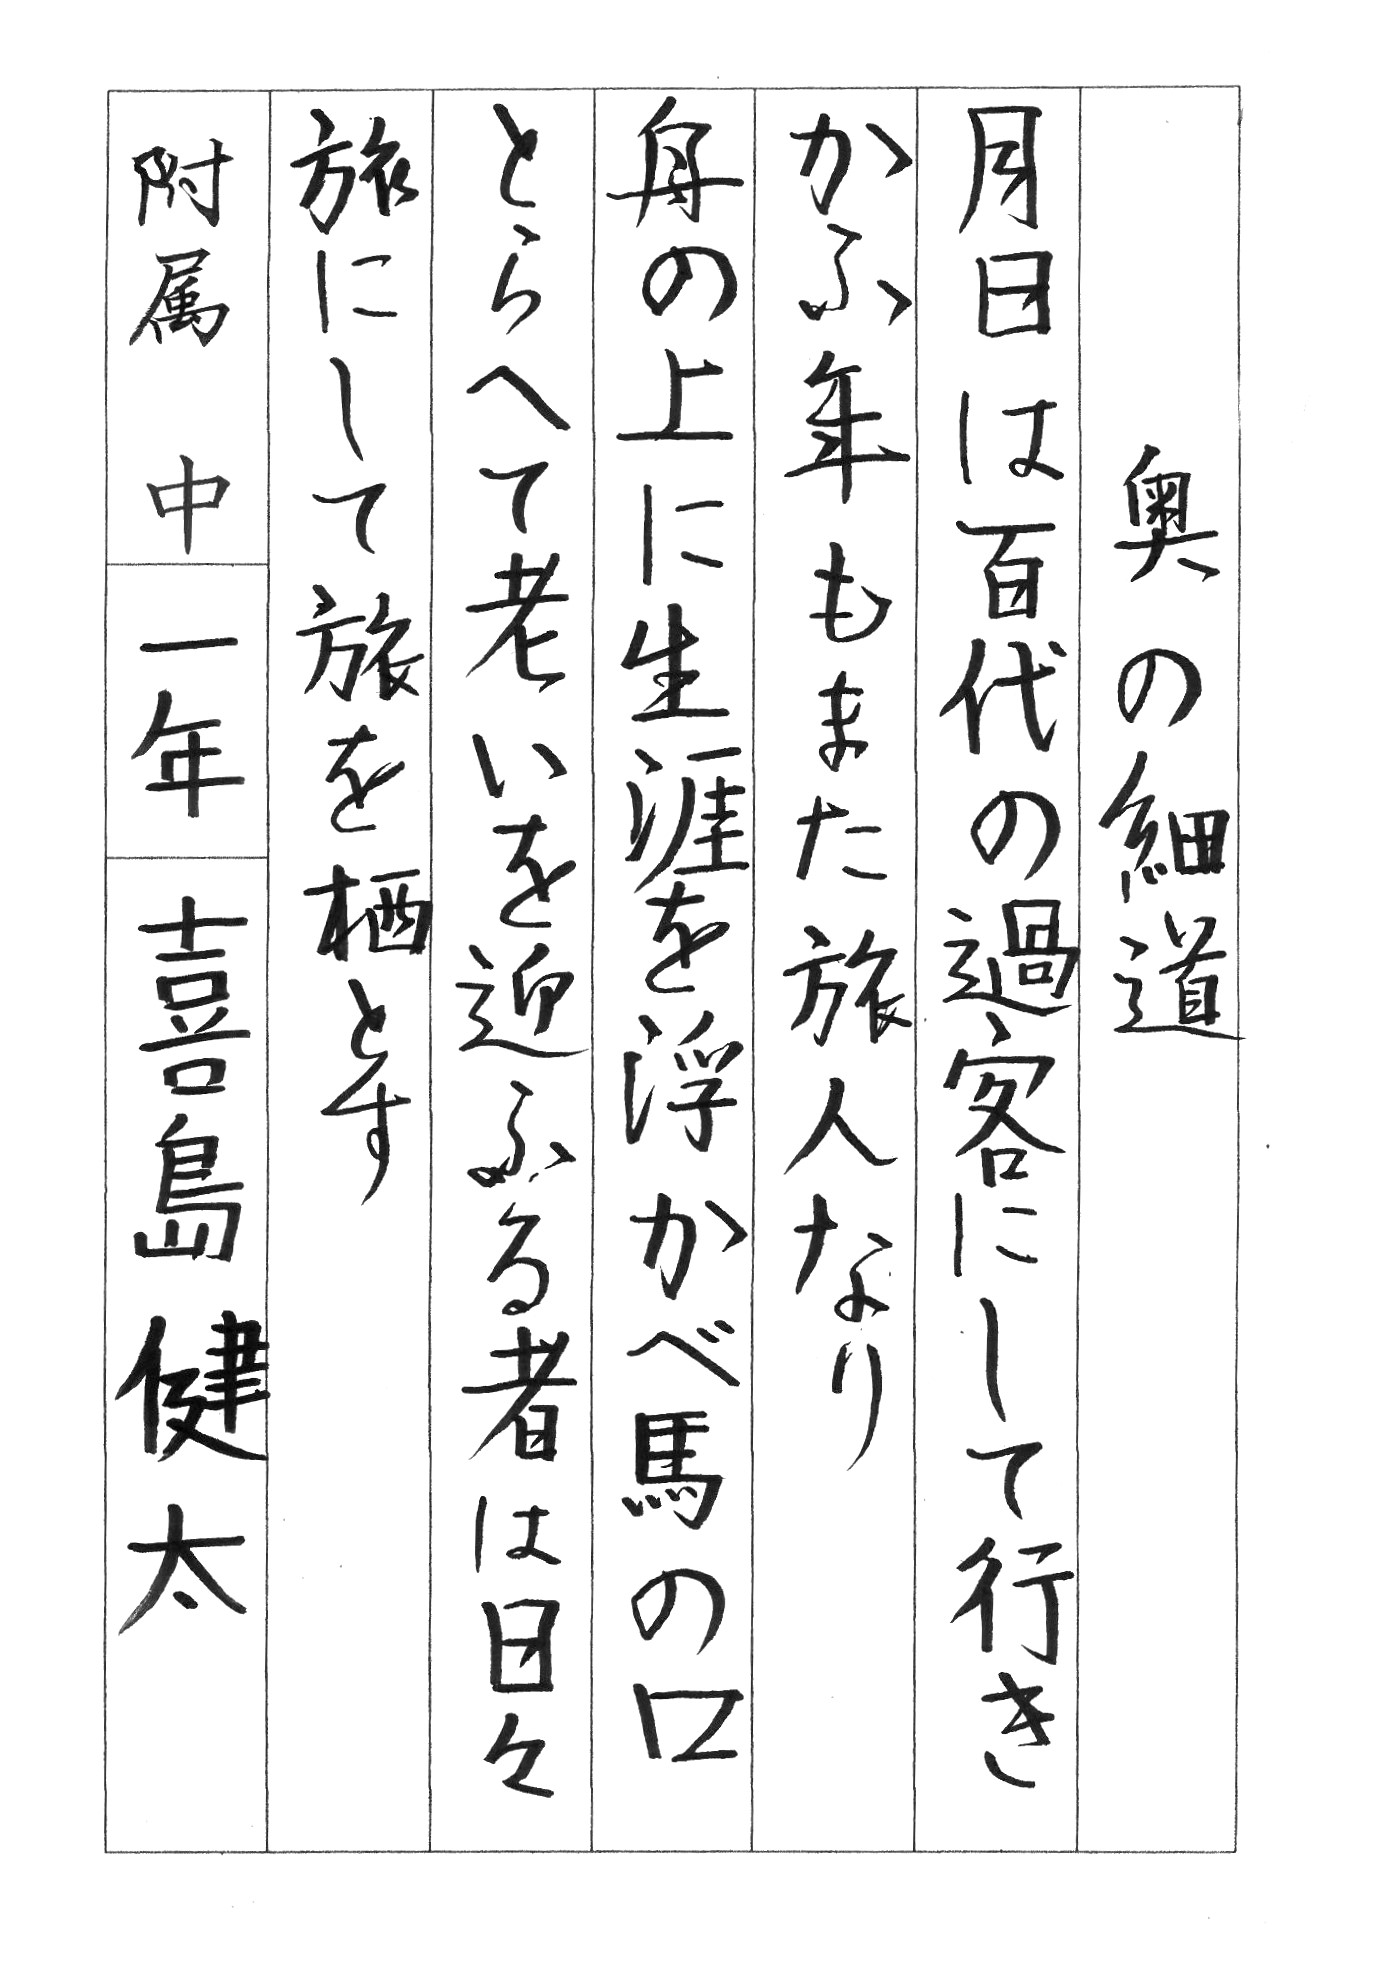 奥の細道
月日は百代の過客にして行き
かふ年もまた旅人なり
舟の上に生涯を浮かべ馬の口
とらへて老いを迎ふる者は日々
旅にして旅を栖とす
附属中 一年 喜島健太